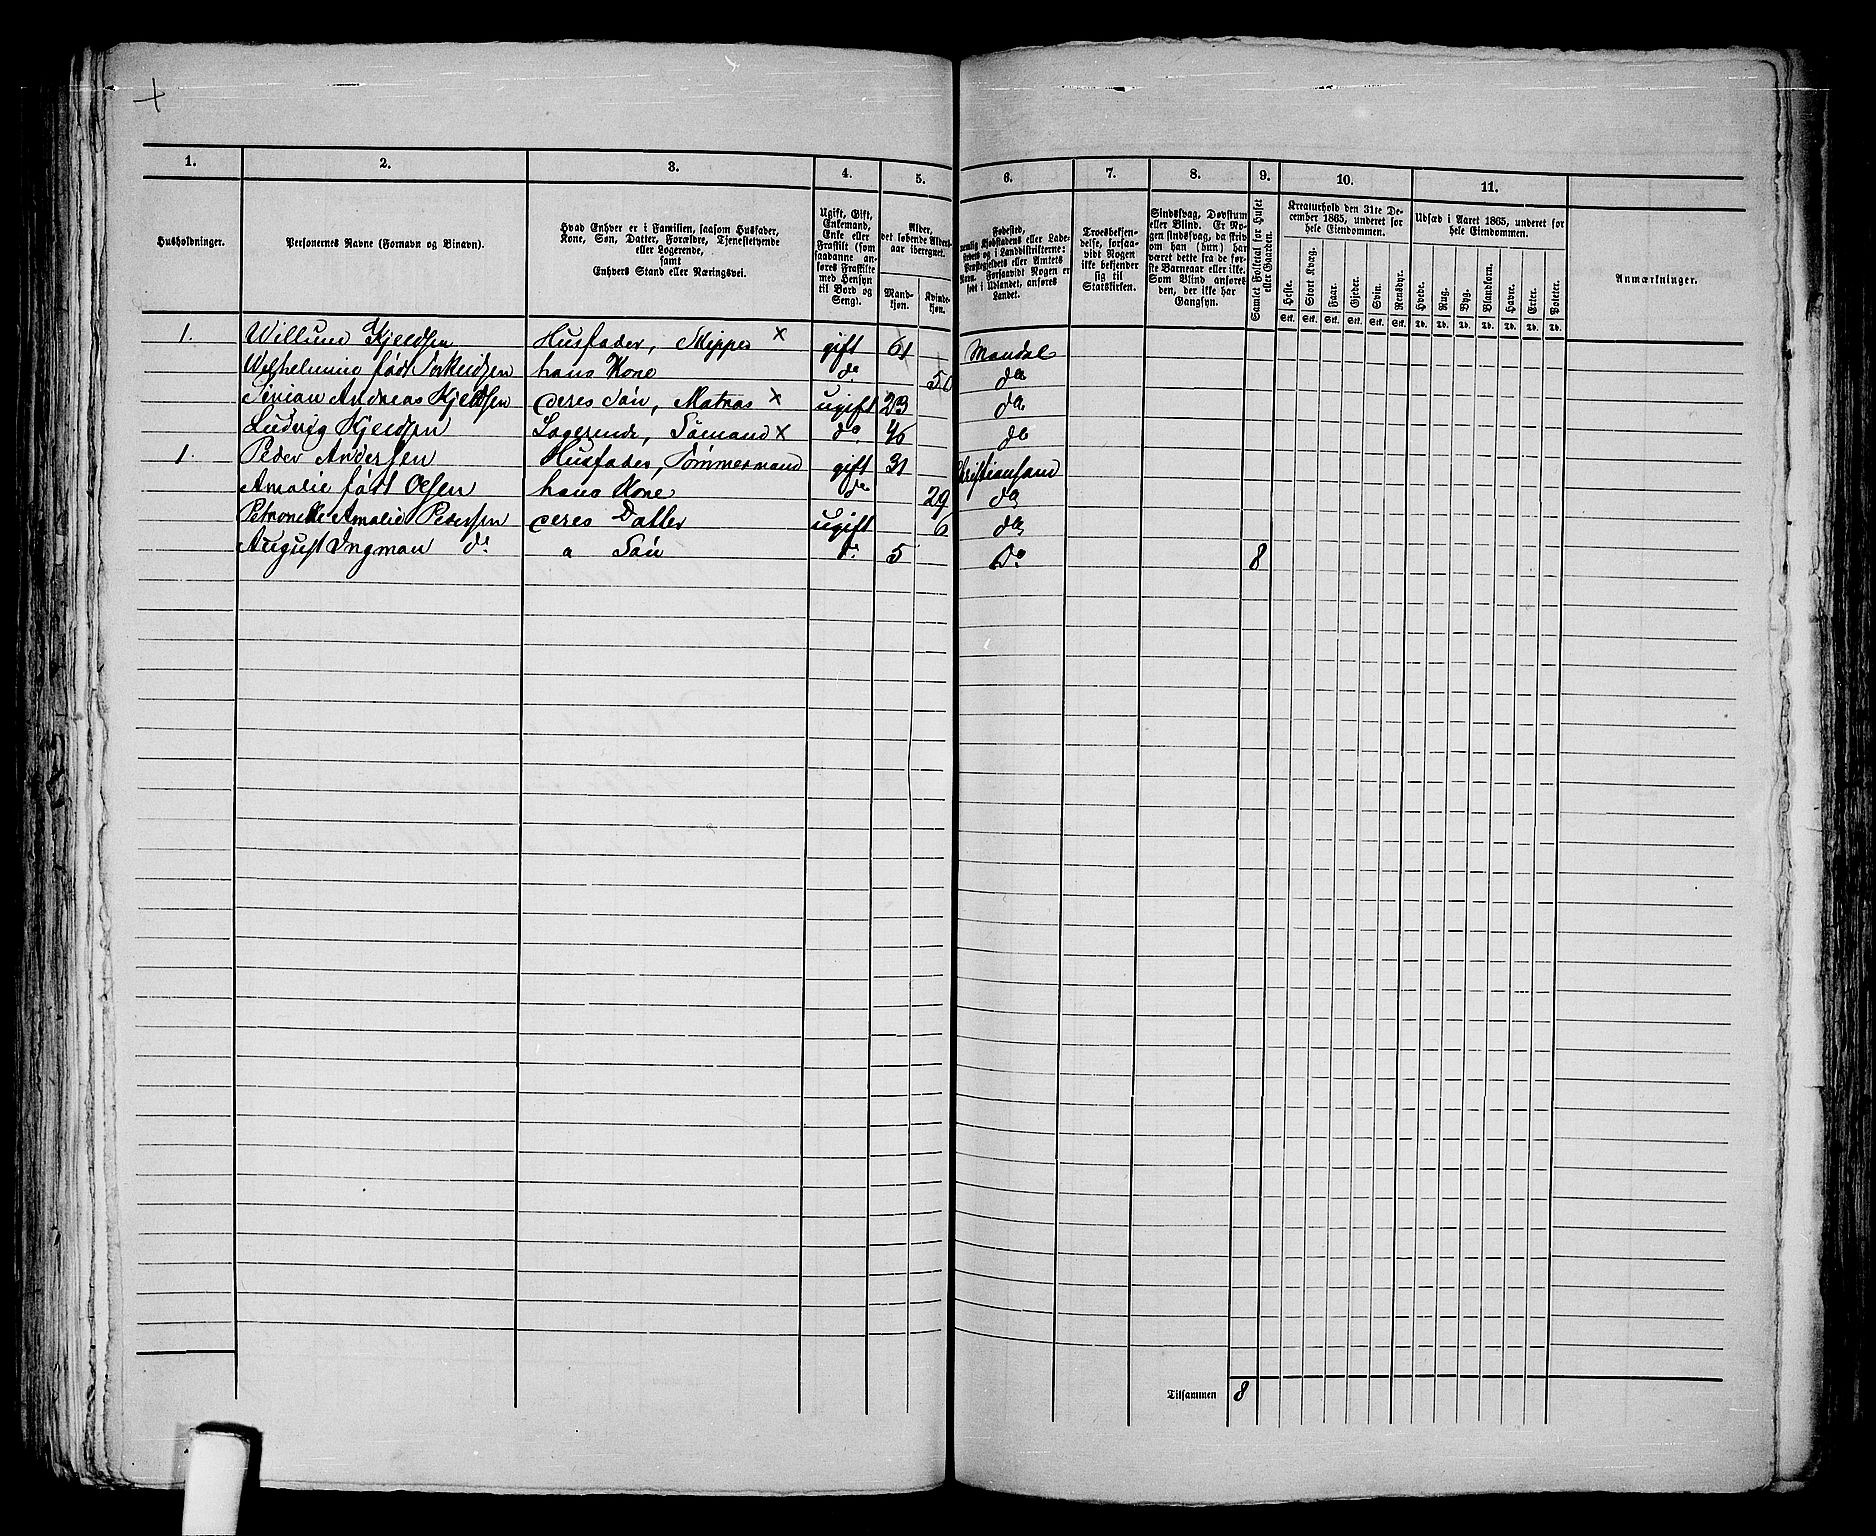 1. 2. 3. 4. 5. 6. 7. 8. 9. 10. 11.
Husholdninger.
Personernes Navne (Fornavn og Binavn).
Hvad Enhver er i Familien, saasom Husfader,
Kone, Søn, Datter, Forældre, Tjenestetyende
eller Logerende,
samt
Enhvers Stand eller Næringsvei.
Ugift, Gift,
Enkemand,
Enke eller
Fraskilt (som
saadanne an-
føres Fraskilte
med Hensyn
til Bord og
Seng).
Alder,
det løbende Alders-
aar iberegnet.
Mand-
kjøn.
Kvinde-
kjøn.
Fødested,
Kjøbstadens eller Lade-
stedets og i Landdistrikterne:
Præstegjeldets eller Amtets
Navn. Forsaavidt Nogen er
født i Udlandet, anføres
Landet.
Troesbekjen-
delse, forsaa-
vidt Nogen
ikke bekjender
sig til
Statskirken.
Sindssvag, Døvstum
eller Blind. Er No-
gen sindssvag, da skriv
om han (hun) har
været dette fra de før-
ste Barneaar eller ikke.
Som Blind anføres
den, der ikke har
Gangsyn.
Samlet Folketal for Huset
eller Gaarden.
Kreaturhold den 31te De-
cember 1865, underet for
hele Eiendommen.
Heste. Stort Kvæg. Faar. Gjeder. Svin. Rensdyr.
Stk. Stk. Stk. Stk. Stk. Stk.
Udsæd i Aaret 1865, underet for
hele Eiendommen.
Hvede. Rug. Byg. Blandkorn. Havre. Erter. Poteter.
Td. Td. Td. Td. Td. Td. Td.
Anmærkninger.
1. Willum Kjeldsen Husfader, Skipper × gift 61 Mandal
Wilhelmine født hans Kone do 50 do
Andreas Kjeldsen deres Søn, Matros × ugift 23 do
Ludvig Kjeldsen Logerende, Sømand × do 46 do
1. Peder Andersen Husfader, Tømmermand gift 31 Christiansand
Amalie født Olsen hans Kone do 29 do
Petronelle Amalie Pedersen deres Datter ugift 6 do
August Ingman do " Søn do 5 do 8
Tilsammen 8